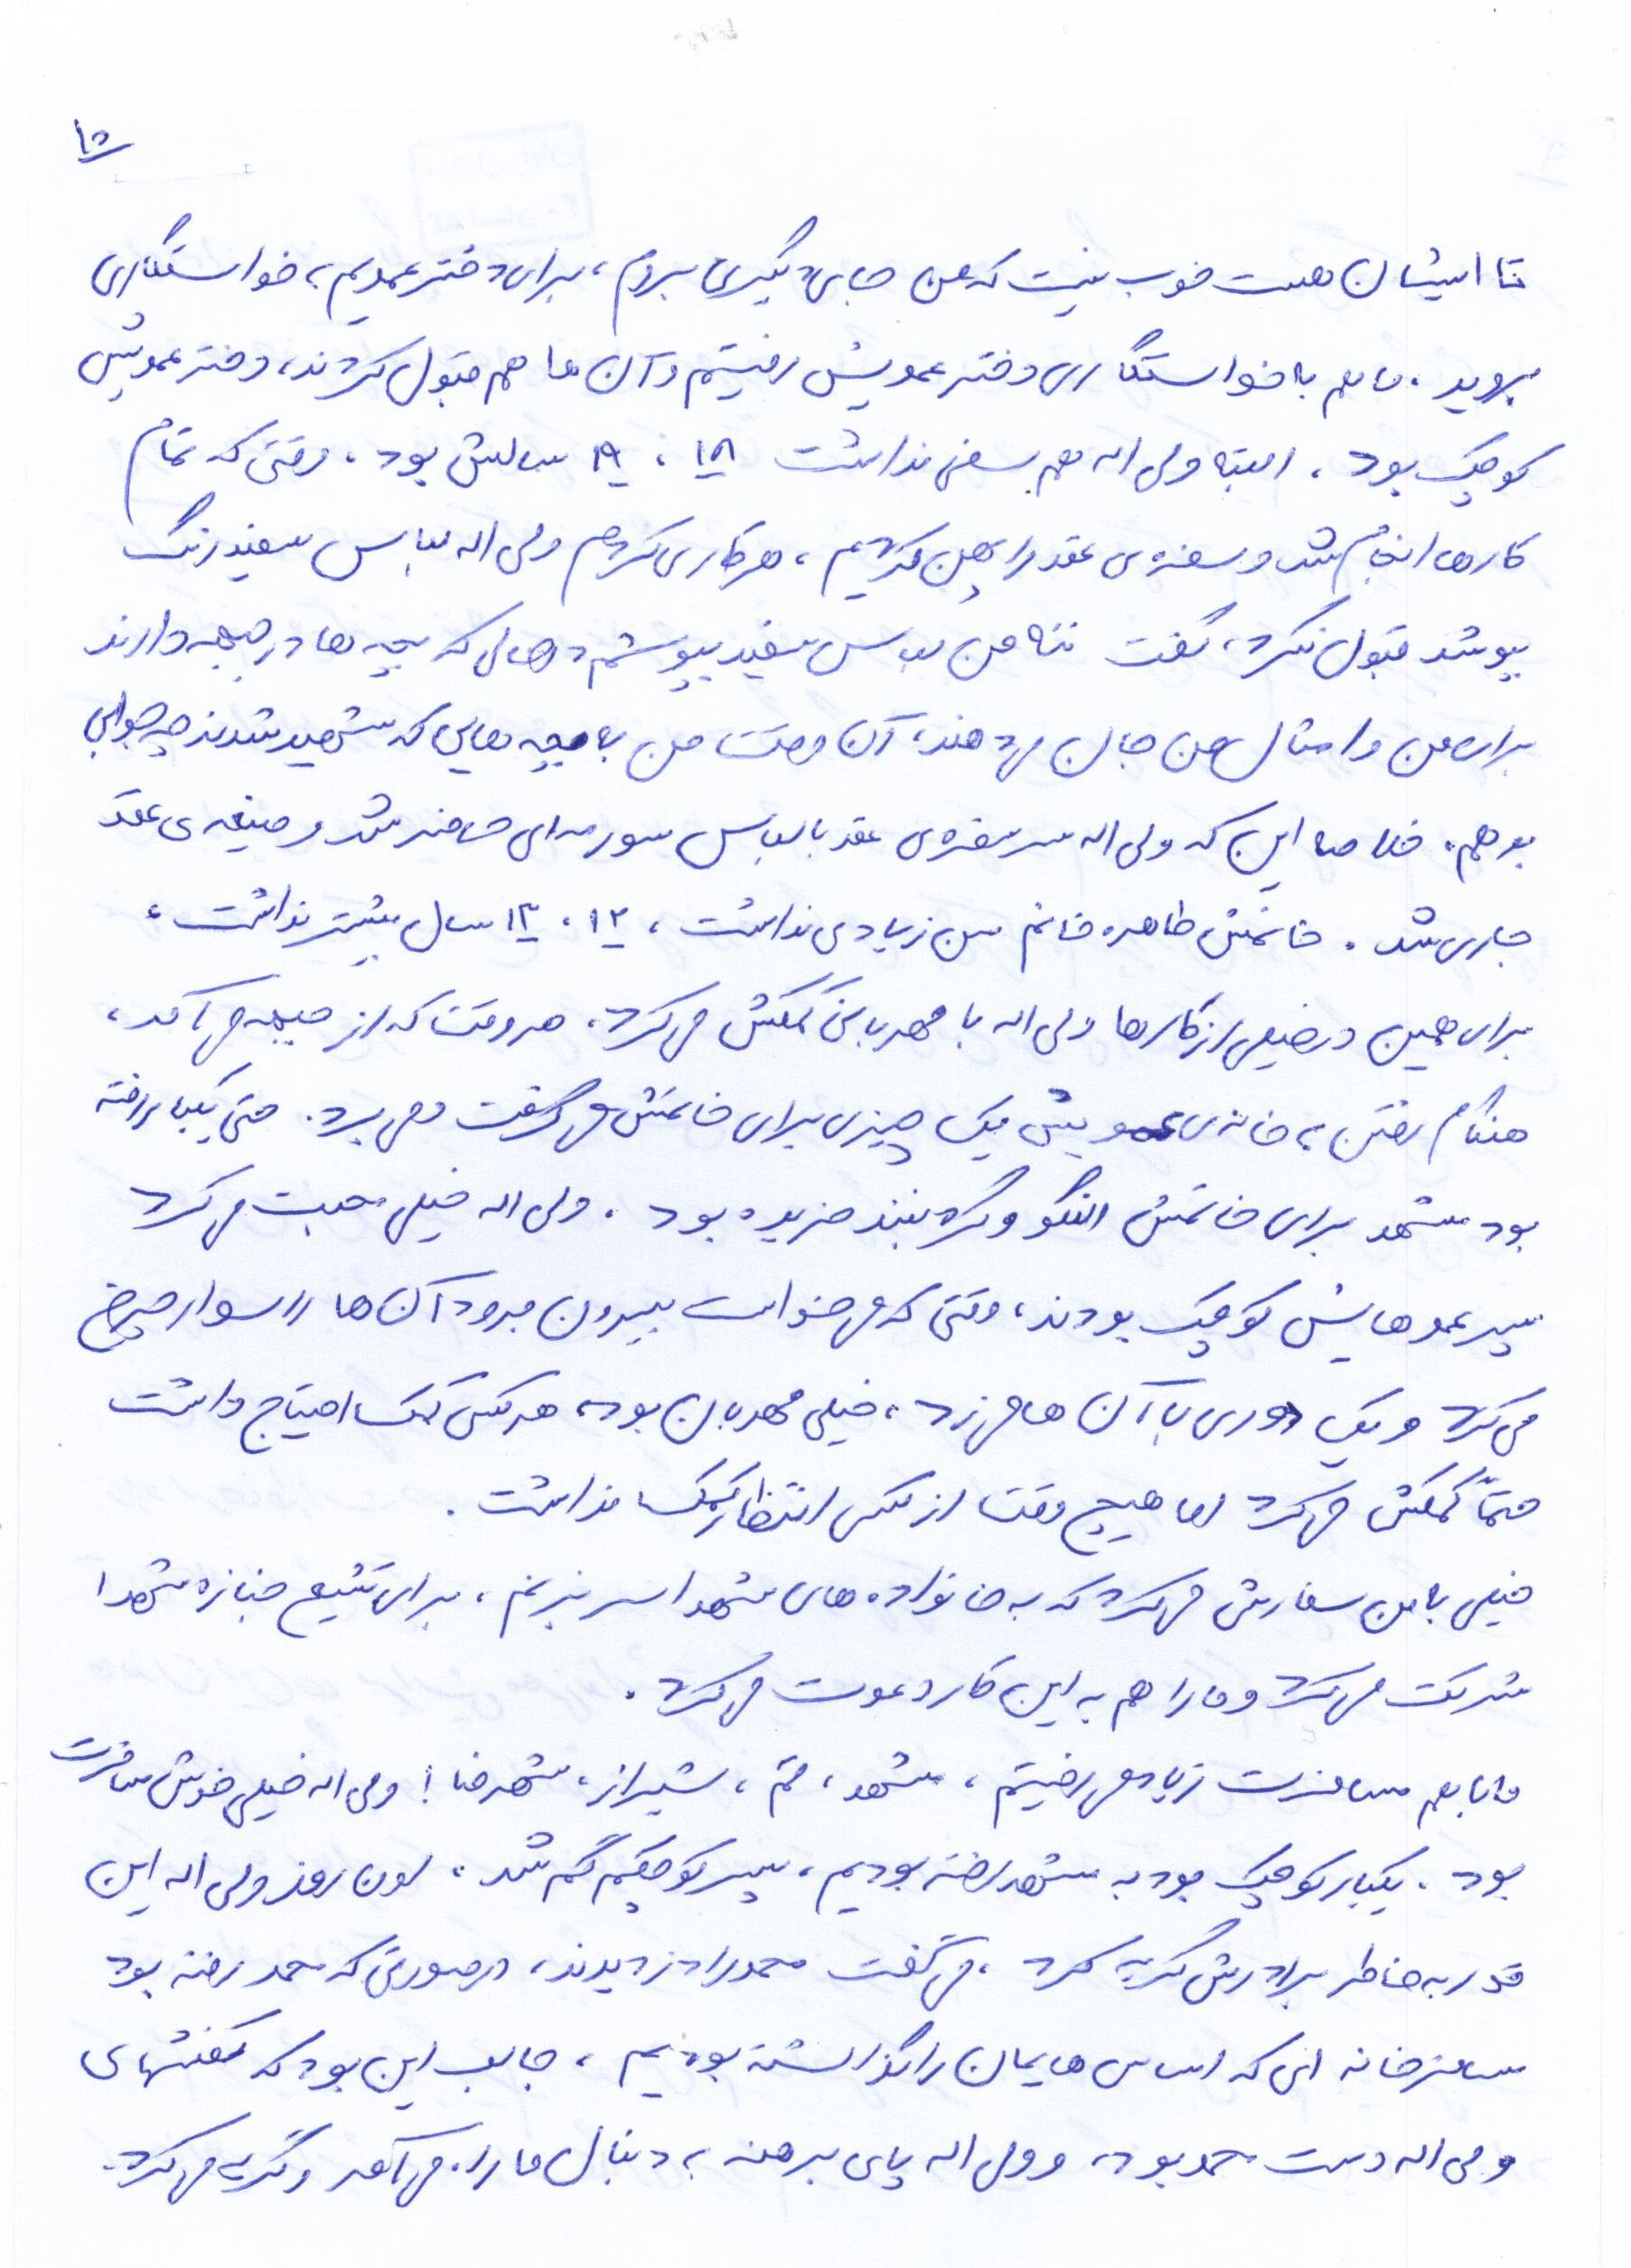 ۱۵
تا ایشان هست خوب نیست که من جای دیگری بروم، برای دختر عمویم به خواستگاری
بروید. ما هم به خواستگاری دختر عمویش رفتیم و آن ها هم قبول کردند، دختر عمویش
کوچک بود. البته ولی اله هم سنی نداشت ۱۸، ۱۹ سالش بود. وقتی که تمام
کارها انجام شد و سفره ی عقد را پهن کردیم، هر کاری کردم ولی اله لباس سفید رنگ
بپوشد قبول نکرد، گفت ننه من لباس سفید بپوشم در حالی که بچه ها در جبهه دارند
برای من و امثال من جان می دهند، آن وقت من به بچه هایی که شهید شدند چه جوابی
بدهم. خلاصه این که ولی اله سر سفره ی عقد با لباس سورمه ای حاضر شد و صیغه ی عقد
جاری شد. خانمش طاهره خانم سن زیادی نداشت، ۱۲، ۱۳ سال بیشتر نداشت،
برای همین در خیلی از کارها ولی اله با مهربانی کمکش می کرد. هر وقت که از جبهه می آمد،
هنگام رفتن به خانه ی عمویش یک چیزی برای خانمش می گرفت و می برد. حتی یکبار رفته
بود مشهد برای خانمش النگو و گردنبند خریده بود. ولی اله خیلی محبت می کرد
پسر عموهایش کوچک بودند، وقتی که می خواست بیرون برود آن ها را سوار چرخ
می کرد و یک دوری با آن ها می زد، خیلی مهربان بود، هر کس کمک احتیاج داشت
حتماً کمکش می کرد اما هیچ وقت از کسی انتظار کمک نداشت.
خیلی به من سفارش می کرد که به خانواده های شهدا سر بزنم، برای تشیع جنازه شهدا
شرکت می کرد و ما را هم به این کار دعوت می کرد.
ما با هم مسافرت زیاد می رفتیم، مشهد، قم، شیراز، شهرضا! ولی اله خیلی خوش مسافرت
بود. یکبار کوچک بود به مشهد رفته بودیم، پسر کوچکم گم شد، اون روز ولی اله این
قدر به خاطر برادرش گریه کرد، می گفت محمد را دزدیدند، در صورتی که محمد رفته بود
مسافرخانه ای که اساس هایمان را گذاشته بودیم، جالب این بود که کفشهای
ولی اله دست محمد بود، و ولی اله پای برهنه به دنبال ما راه می آمد و گریه می کرد.